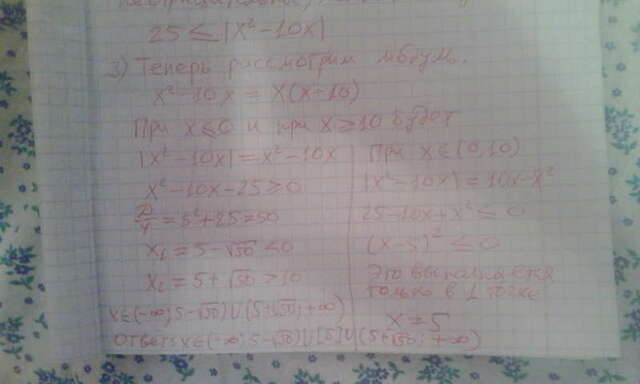 25 ≤ |x²-10x|
3) Теперь рассмотрим модуль.
x²-10x = x(x-10)
При x≤0 и при x≥10 будет
|x²-10x| = x²-10x
x²-10x-25 ≥ 0
D/4 = 5²+25 = 50
x₁ = 5-√50 < 0
x₂ = 5+√50 > 10
x∈(-∞; 5-√50)∪(5+√50; +∞)
При x∈[0,10)
|x²-10x| = 10x-x²
25-10x+x² ≤ 0
(x-5)² ≤ 0
Это выполняется
только в 1 точке
x = 5
Ответ: x∈(-∞; 5-√50)∪[5]∪(5+√50; +∞)